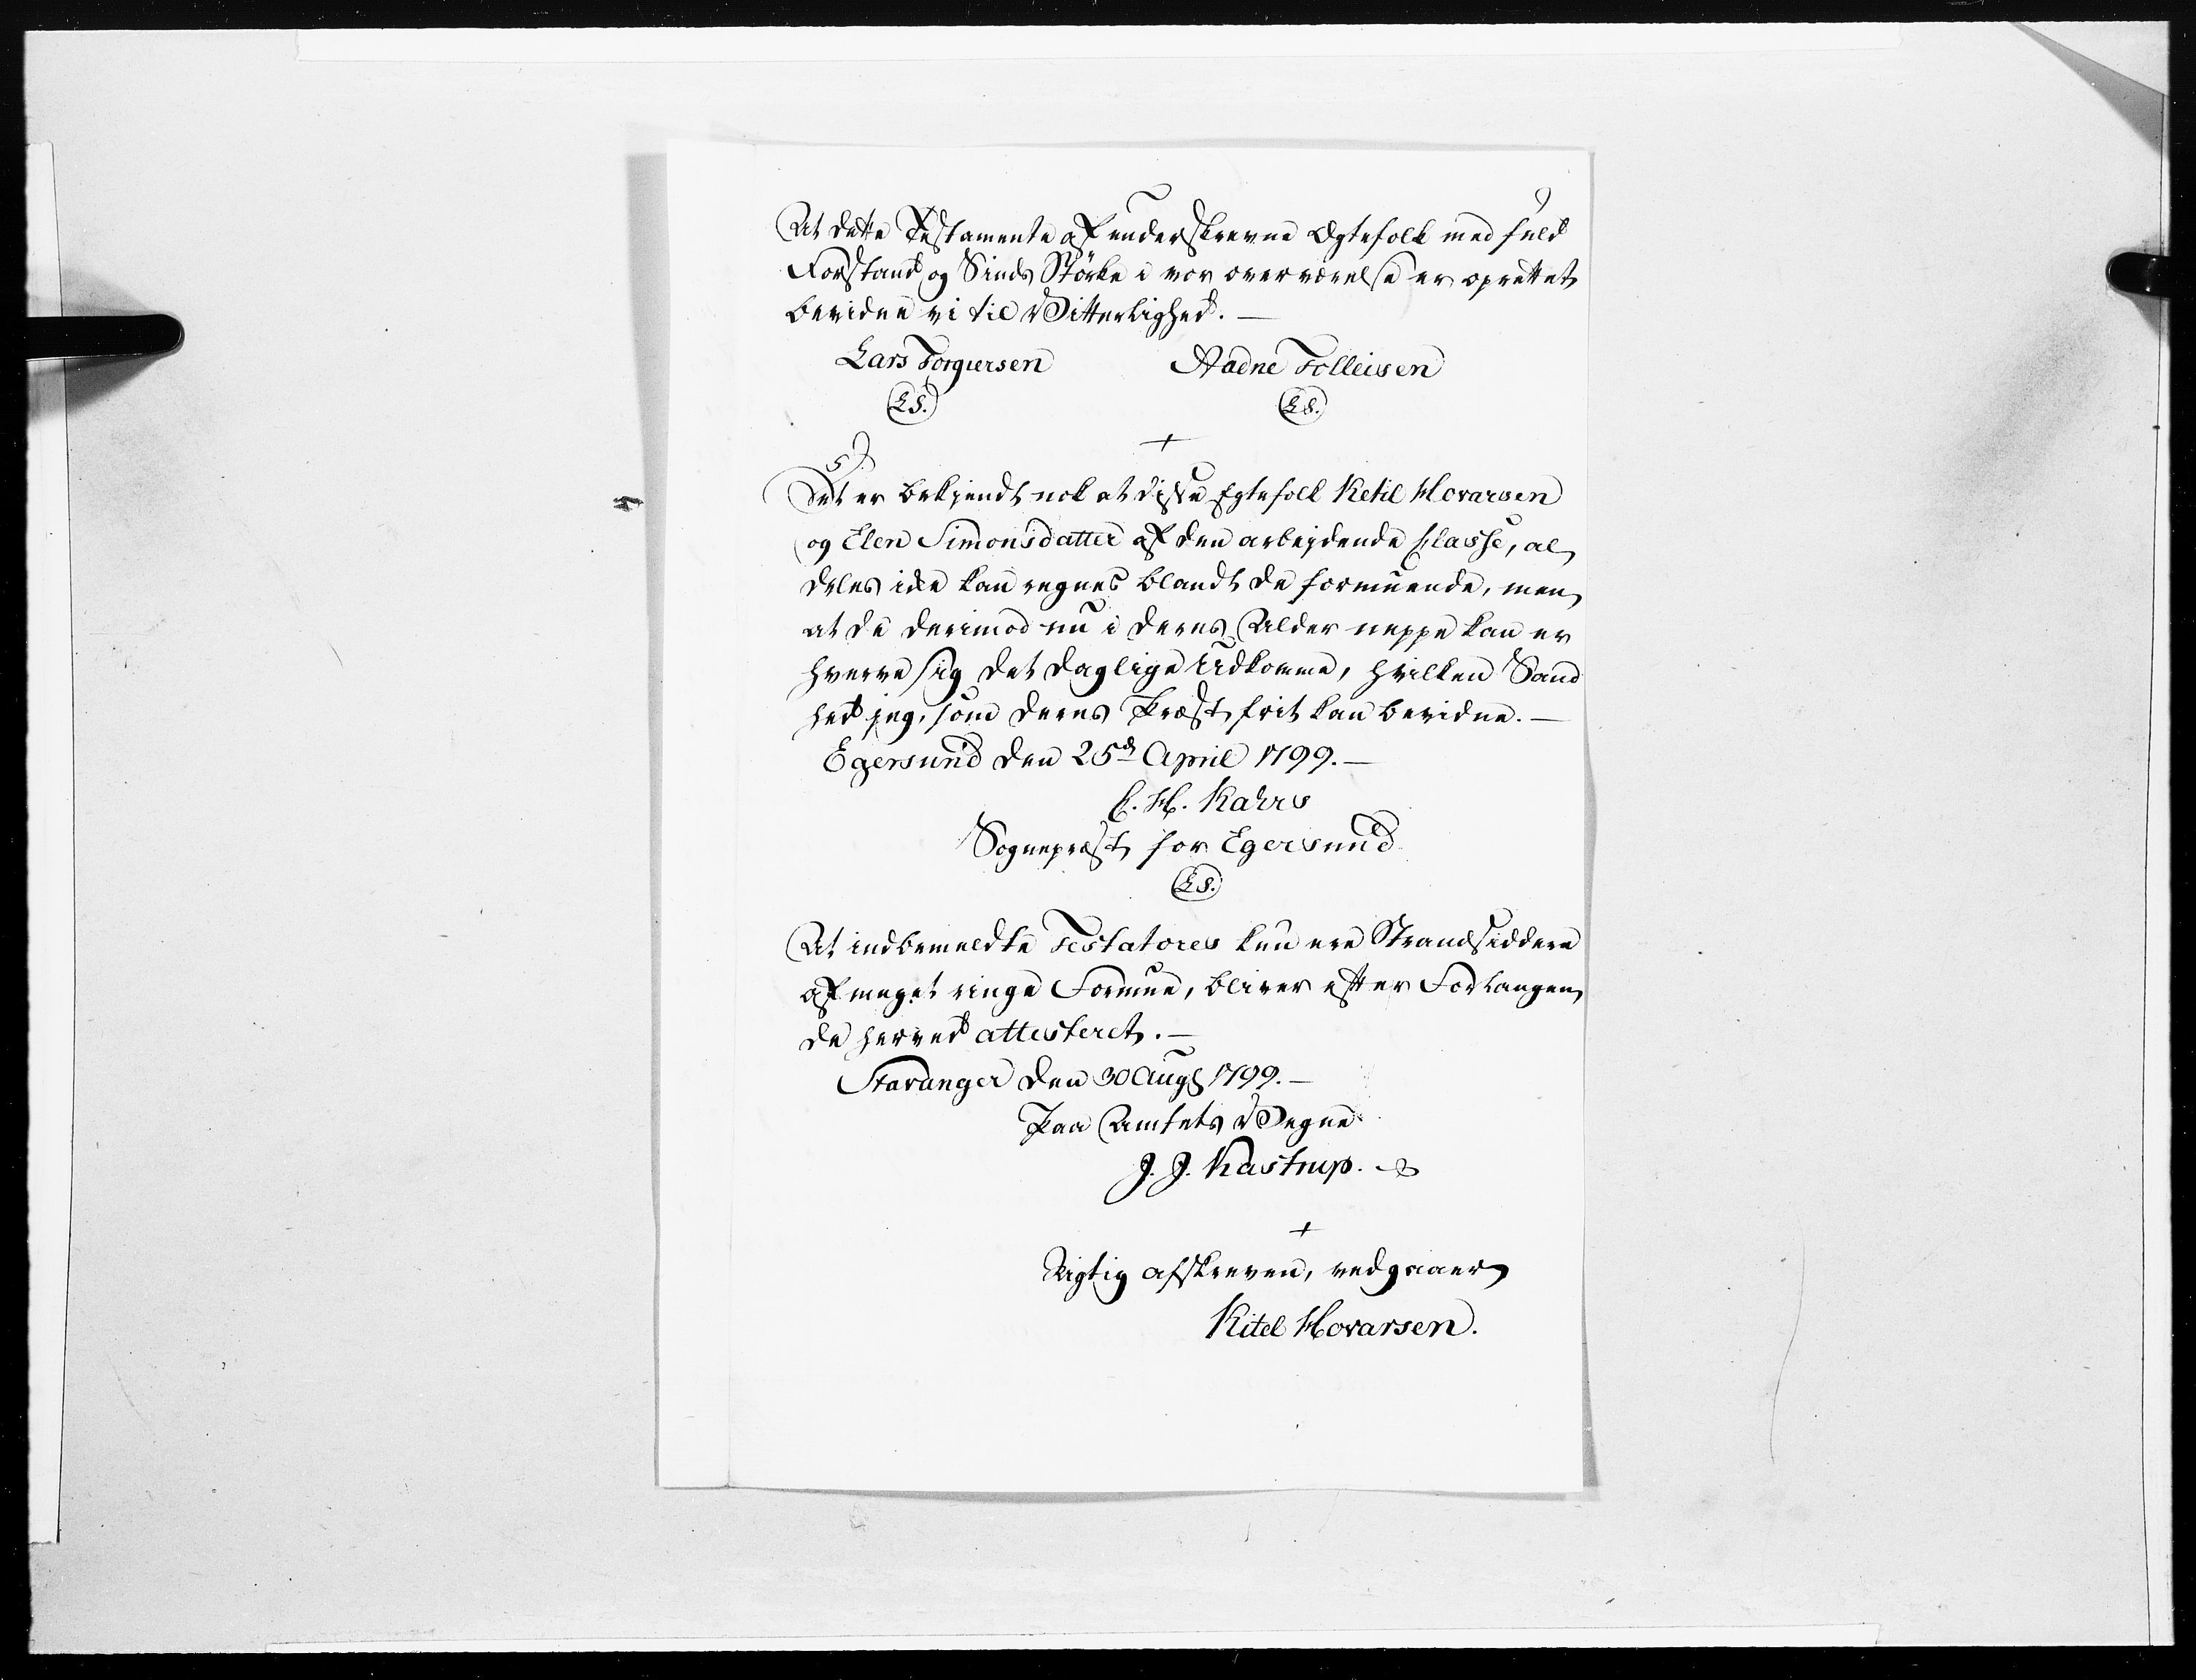 At dette Testamente af underskrevne Ægtefolk med fuld
Forstand og Sinds Störke i vor overværelse er oprettet
bevidne vi til Vitterlighed. —
Lars Torgiersen Aadne Tolleisen
(LS.) (LS.)
+
Det er bekjendt nok at disse Egtefolk Ketil Hovarsen
og Elen Simonsdatter af den arbejdende Classe, al
deles ikke kan regnes blandt de formuende, men
at de derimod nu i deres Alder neppe kan er
hverve sig det daglige Udkomme, hvilken Sand
hed jeg, som deres Præst, frit kan bevidne. —
Egersund den 25d April 1799. —
C. H. Kahrs
Sognepræst for Egersund
(LS.)
At indbemeldte Testatores kun ere Strandsiddere
af meget ringe Formue, bliver efter Forlangen
de herved attesteret. —
Stavanger den 30 Aug 1799. —
Paa Amtets Vegne
J. J. Kastrup.
+
Rigtig afskreven, vedgaaer
Kitel Hovarsen.